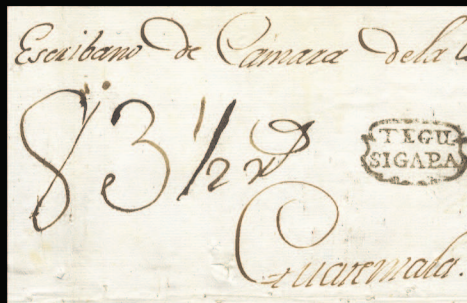 Escribano de Cámara de la
83 1/2 rs
TEGU
SIGAPA
Guatemala.